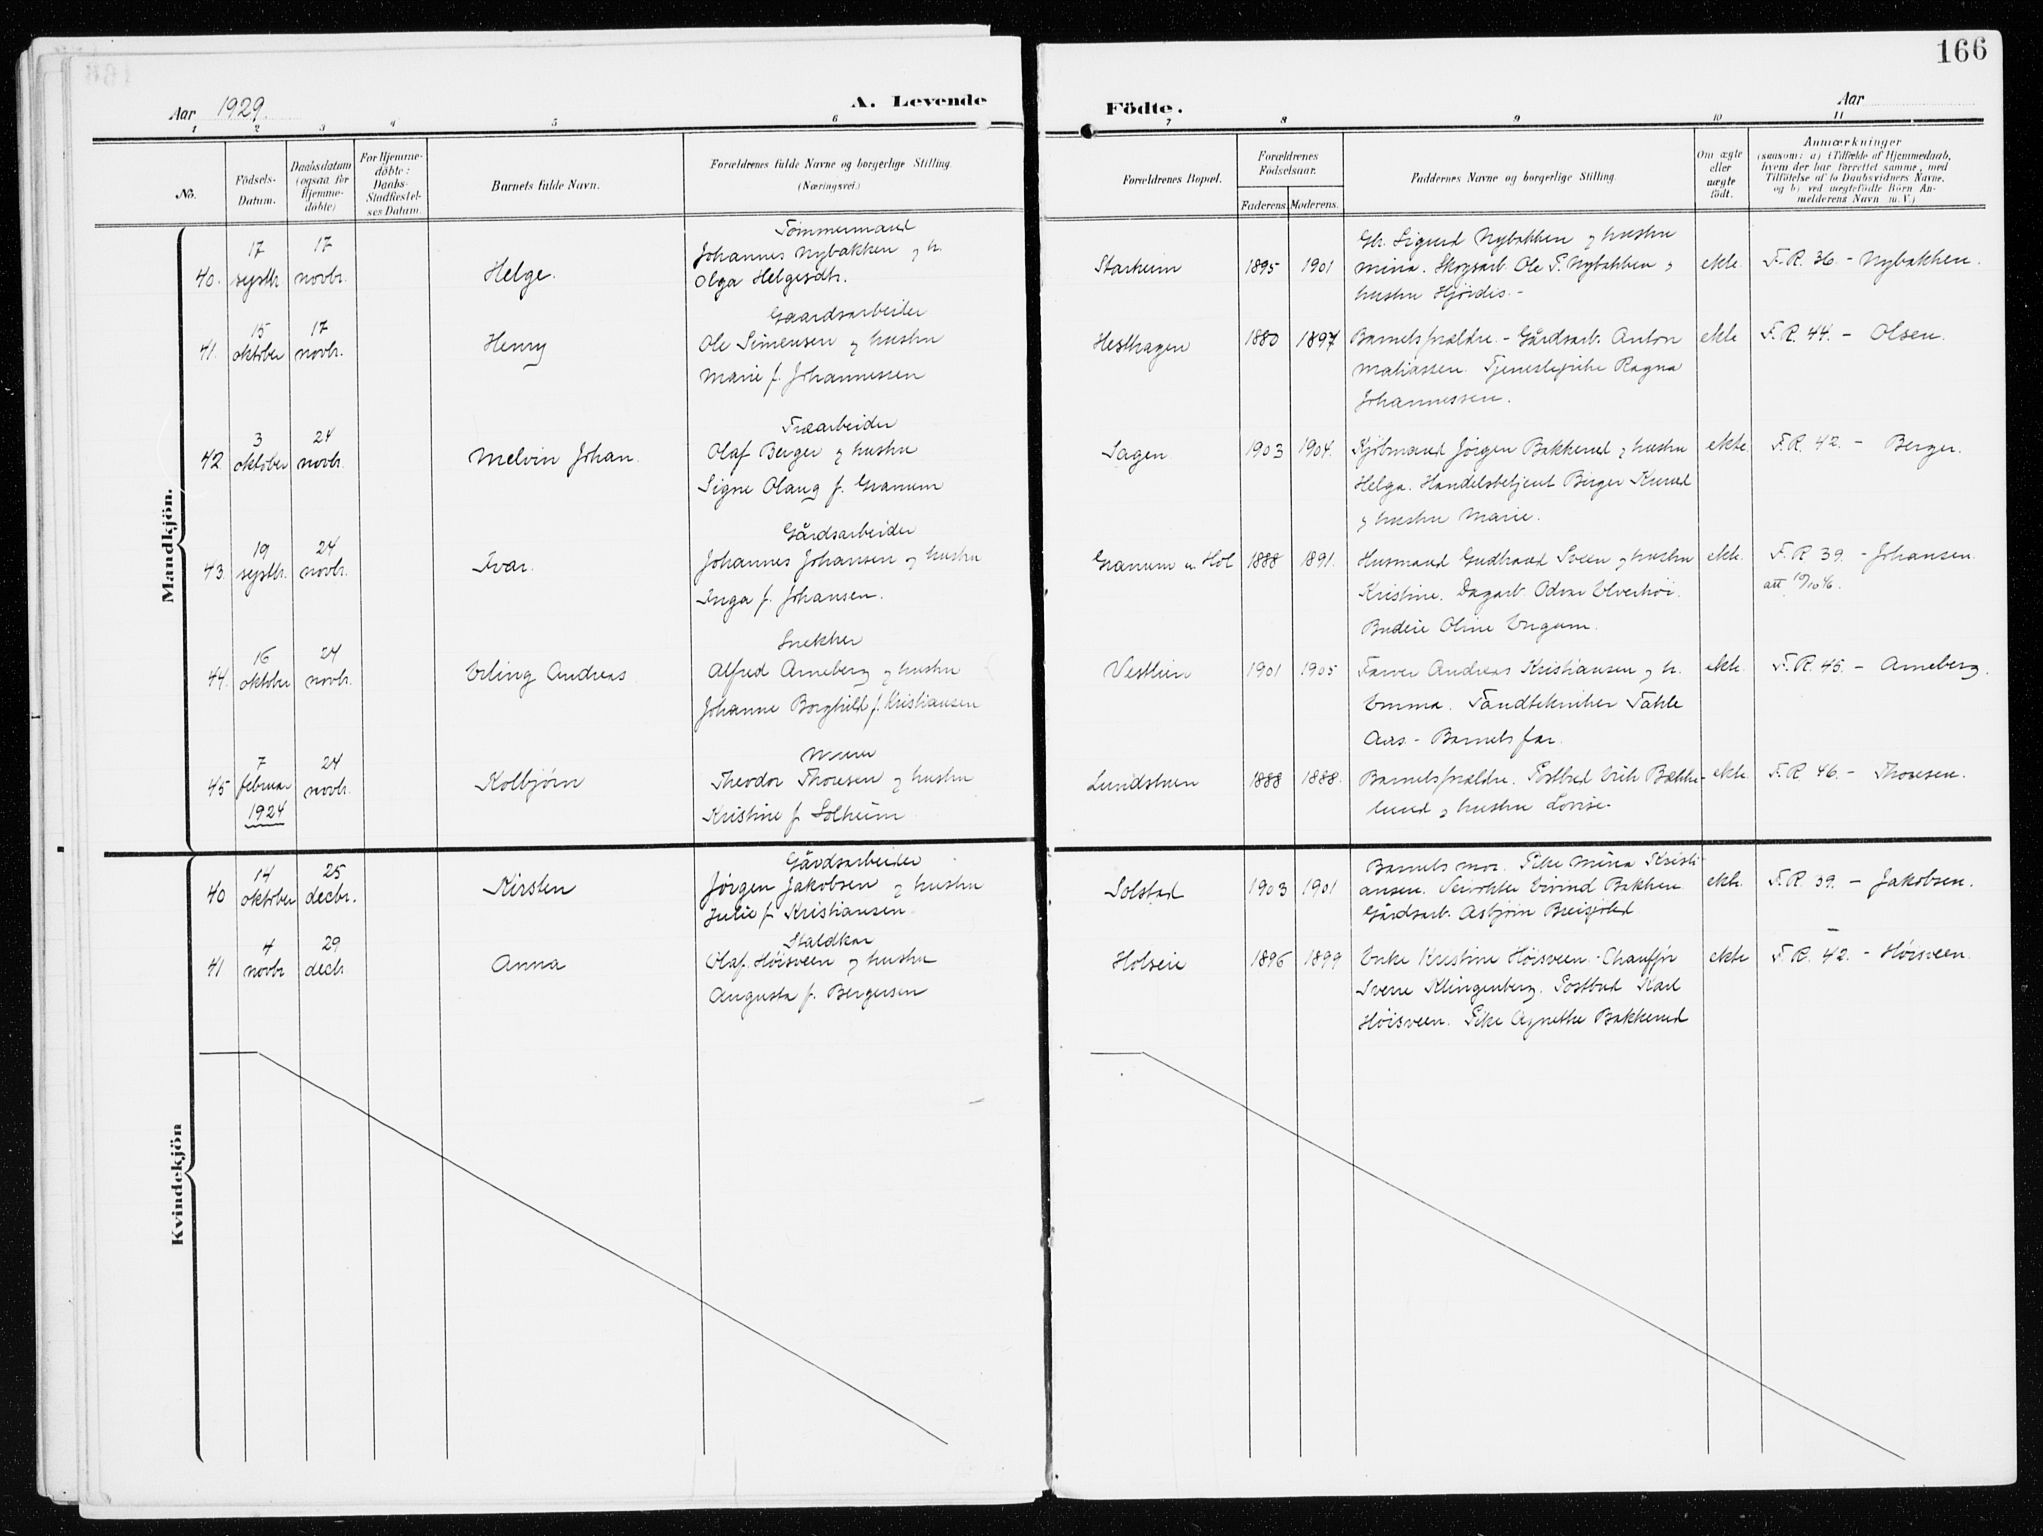 166
Aar 1929.
A. Levende
Födte.
Aar
1 2 3 4 5 6 7 8 9 10 11
No.
Födsels-
Datum.
Daabsdatum
(ogsaa for
Hjemme-
døbte)
For Hjemme-
døbte:
Daabs-
Stadfæstel-
ses Datum.
Barnets fulde Navn.
Forældrenes fulde Navne og borgerlige Stilling
(Næringsvei.)
Forældrenes Bopæl.
Forældrenes
Födselsaar.
Faderens. Moderens.
Faddernes Navne og borgerlige Stilling.
Om ægte
eller
uægte
født.
Anmærkninger
(saasom: a) i Tilfælde af Hjemmedaab,
hvem der har forrettet samme, med
Tilföielse af to Daabsvidners Navne,
og b) ved uægtefödte Börn An-
melderens Navn m. V.)
Mandkjön.
40.
17
septbr.
17
novbr.
Helge.
Tömmermand
Johannes Nybakken og h.
Olga Helgesdtr.
Starheim
1895
1901
Gb. Sigurd Nybakken og hustru
Mina. Skogsarb. Ole P. Nybakken og
hustru Hjördis.-
ekte.
F.R. 36. - Nybakken.
41.
15
oktober
17
novbr.
Henry
Gaardsarbeider
Ole Simensen og hustru
Marie f. Johannessen
Hesthagen
1880
1897
Barnets forældre. - Gårdsarb. Anton
Matiassen. Tjenestepike Ragna
Johannessen.
ekte
F.R. 44. - Olsen.
42
3
oktober
24
novbr.
Melvin Johan.
Træarbeider
Olaf Berger og hustru
Signe Olaug f. Granum
Sagen.
1903
1904.
Kjöbmand Jörgen Bakkerud og hustru
Helga. Handelsbetjent Birger Kurud
og hustru Marie.
ekte.
F.R. 42. - Berger.
43.
19
septbr.
24
novbr.
Ivar.
Gårdsarbeider
Johannes Johansen og hustru
Inga f. Johansen.
Granum u. Hol
1888
1891.
Husmand Gudbrand Sveen og hustru
Kristine. Dagarb. Odvar Ulverhöi.
Budeie Oline Ungum.
ekte.
F.R. 39. - Johansen.
att 19/10 46.
44.
16
oktober
24
novbr.
Erling Andreas
Snekker
Alfred Arneberg og hustru
Johanne Borghild f. Kristiansen
Vestlien
1901
1905
Farver Andreas Kristiansen og h.
Emma. Tandtekniker
Aas - Barnets far.
ekte.
F.R. 45. - Arneberg.
45
7
februar
1924
24
novbr.
Kolbjörn
Murer
Theodor Thoresen og hustru
Kristine f. Solheim
Lundstuen
1888
1888.
Barnets forældre. Postbud Erik Bække-
lund og hustru Lovise.
ekte.
F.R. 46. - Thoresen.
Kvindekjön
40
14
oktober
25
decbr.
Kirsten
Gårdsarbeider
Jörgen Jakobsen og hustru
Julie f. Kristiansen.
Solstad
1903
1901
Barnets mor. Pike Mina Kristi-
ansen. Eivind Bakken
Gårdsarb. Asbjörn
ekte.
F.R. 39. - Jakobsen.
41
4
novbr
29
decbr.
Anna
Staldkar
Olaf Höisveen og hustru
Augusta f. Bergersen
Holseie
1896
1899
Enke Kristine Höisveen. Chaufför
Sverre Klingenberg. Postbud Karl
Höisveen. Pike Agnethe Bakkerud
ekte
F.R. 42. - Höisveen.